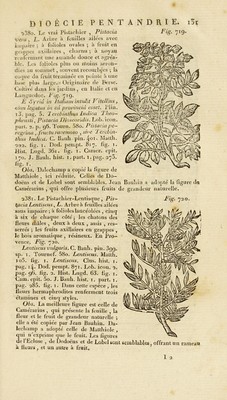 DIOÉCIE PENTANDRIE. 131
2380. Le vrai Pistachier, Pistacia
vera, L. Arbre à feuilles ailées avec
impaire; à folioles ovales; à fruit en
grappes axillaires, charnu; à noyau
renfermant une amande douce et agréa-
ble. Les folioles plus ou moins arron-
dies au sommet, souvent recourbées; la
coque du fruit terminée en pointe à une
base plus large. Originaire de Perse.
Cultivé dans les jardins, en Italie et en
Languedoc. Fig. 719.
E Syriâ in Italiam intulit Vitellius,
cùm legatus in eâ provinciâ esset. Plin.
13. pag. 5. Terebinthus Indica Theo-
phrasti, Pistacia Dioscoridis. Lob. icon.
part. 2. p. 96. Tourn. 580. Pistacia pe-
regrina, fructu racemoso, sive Terebin-
thus Indica. C. Bauh. pin. 401. Matth.
fig. 1. Dod. pempt. 817. fig. 1.
Hist. Lugd. fig. 1. Camer. epit.
170. J. Bauh. hist. 1. part. 1. pag. 275.
fig. 1.
Obs. Dalechamp a copié la figure de
Matthiole, ici réduite. Celles de Do-
doens et de Lobel sont semblables. Jean Bauhin a adopté la figure de
Camérarius, qui offre plusieurs fruits de grandeur naturelle.
Fig. 719.
2381. Le Pistachier-Lentisque, Pis-
tacia Lentiscus, L. Arbre à feuilles ailées
sans impaire; à folioles lancéolées, cinq
à six de chaque côté; les chatons des
fleurs mâles, deux à deux, assez
serrés; les fruits axillaires en grappes,
le bois aromatique, résineux. En Pro-
vence. Fig. 720.
Lentiscus vulgaris. C. Bauh. pin. 399.
sp. 1. Tournef. 580. Lentiscus. Matth.
fig. 1. Lentiscus, Clus. hist. 1.
pag. 14. Dod. pempt. 871. Lob. icon. 2.
pag. 96. fig. 2. Hist. Lugd. fig. 1.
Cam. epit. 50. J. Bauh. hist. 1. part. 1.
pag. 285. fig. 1. Dans cette espèce, les
fleurs hermaphrodites renferment trois
étamines et cinq styles.
Obs. La meilleure figure est celle de
Camérarius, qui présente la feuille, la
fleur et le fruit de grandeur naturelle;
elle a été copiée par Jean Bauhin. Da-
lechamp a adopté celle de Matthiole,
qui n'exprime que le fruit. Les figures
de l'Ecluse, de Dodoens et de Lobel sont semblables, offrant un rameau
à fleurs, et un autre à fruit.
Fig. 720.
I 2